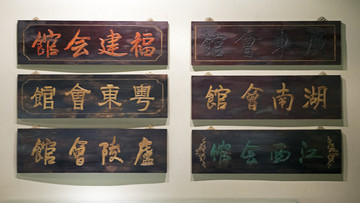 福建会館
東會館
粵東會館
湖南會館
廬陵會館
江西会館